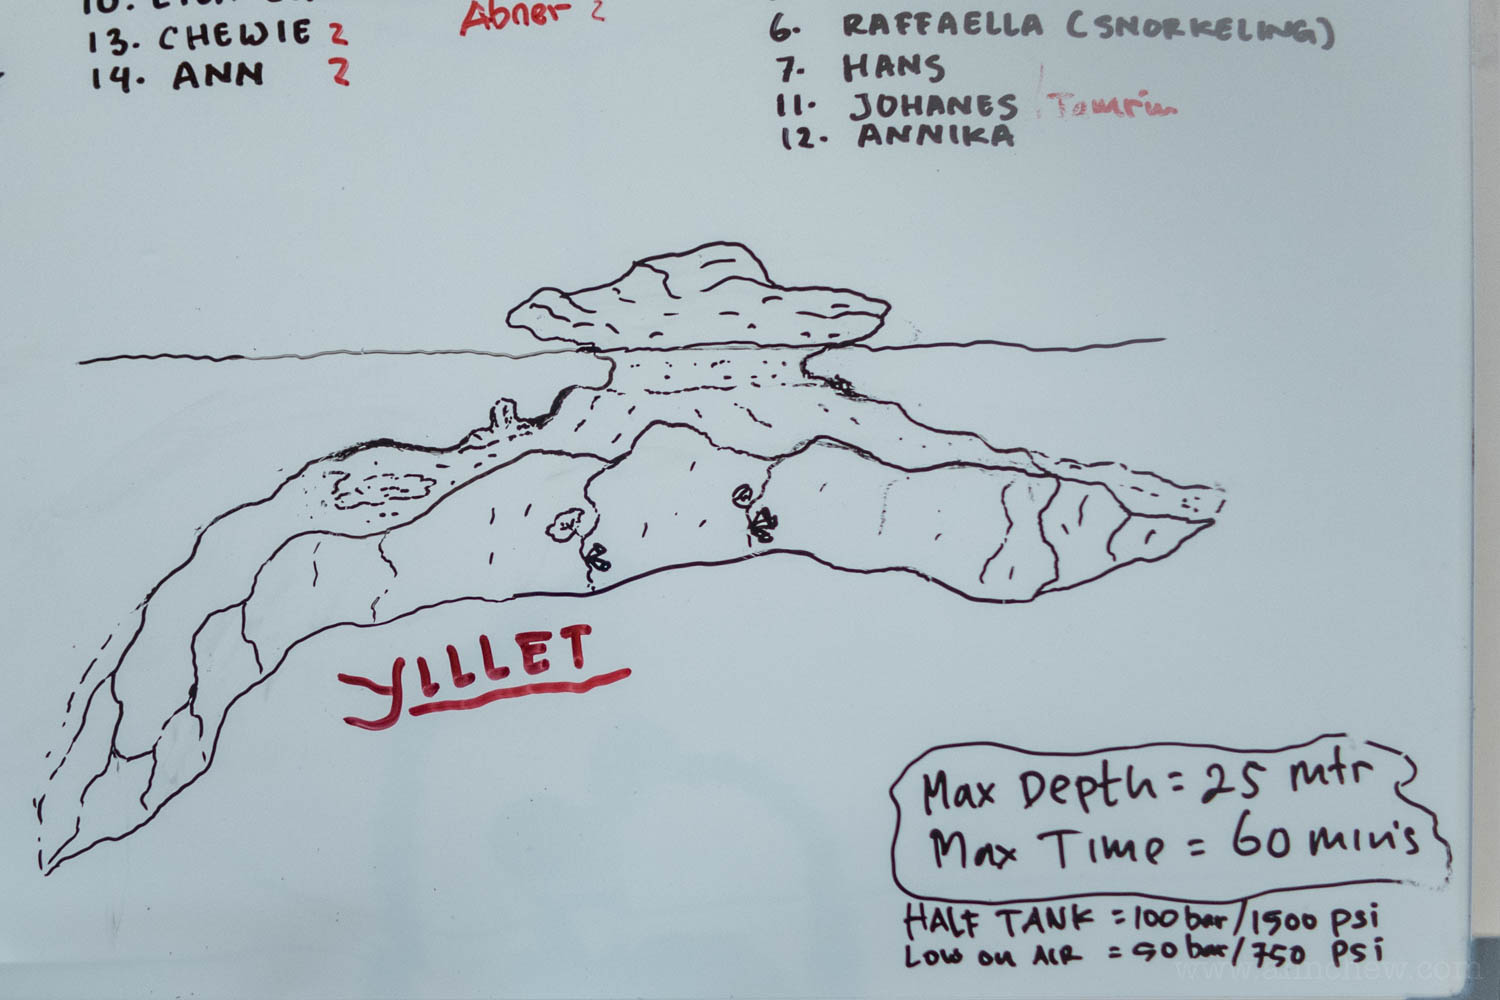 10.
13. CHEWIE 2
14. ANN 2
Abner 2
6. RAFFAELLA (SNORKELING)
7. HANS
11. JOHANES / Tamrin
12. ANNIKA
YILLET
Max Depth = 25 mtr
Max Time = 60 min's
HALF TANK = 100 bar/1500 PSi
LOW on AIR = 50 bar/750 PSi
www.annchew.com